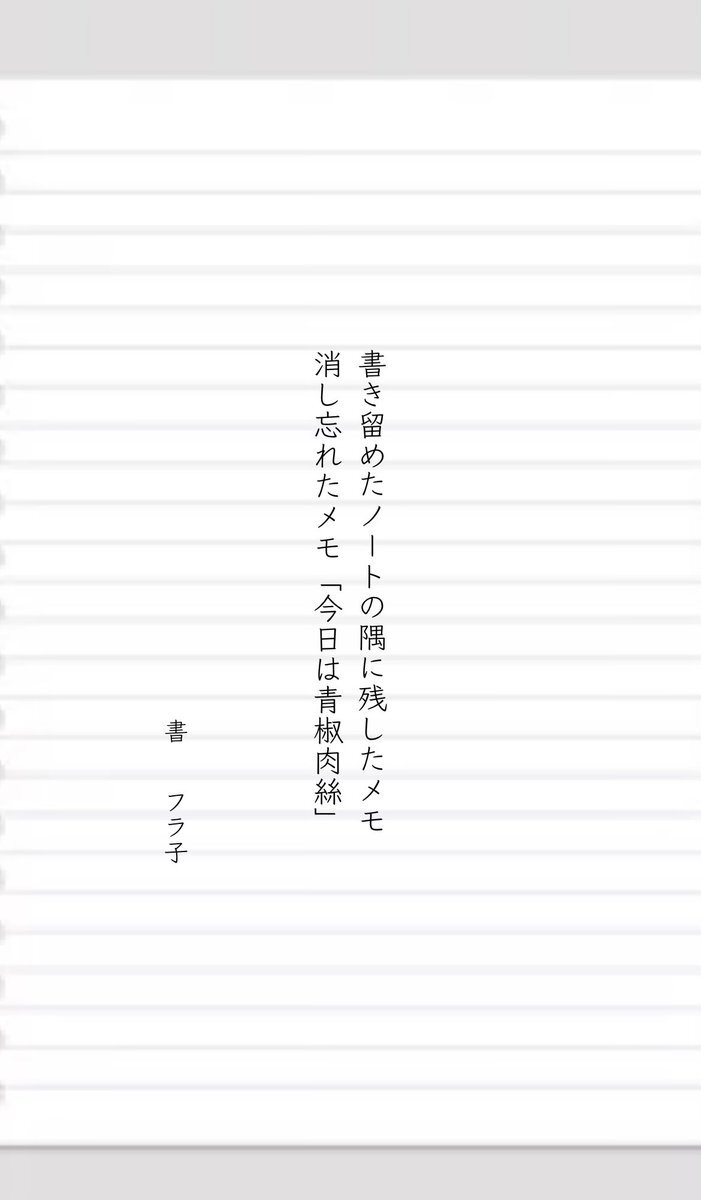 書き留めたノートの隅に残したメモ
消し忘れたメモ「今日は青椒肉絲」
書　フラ子